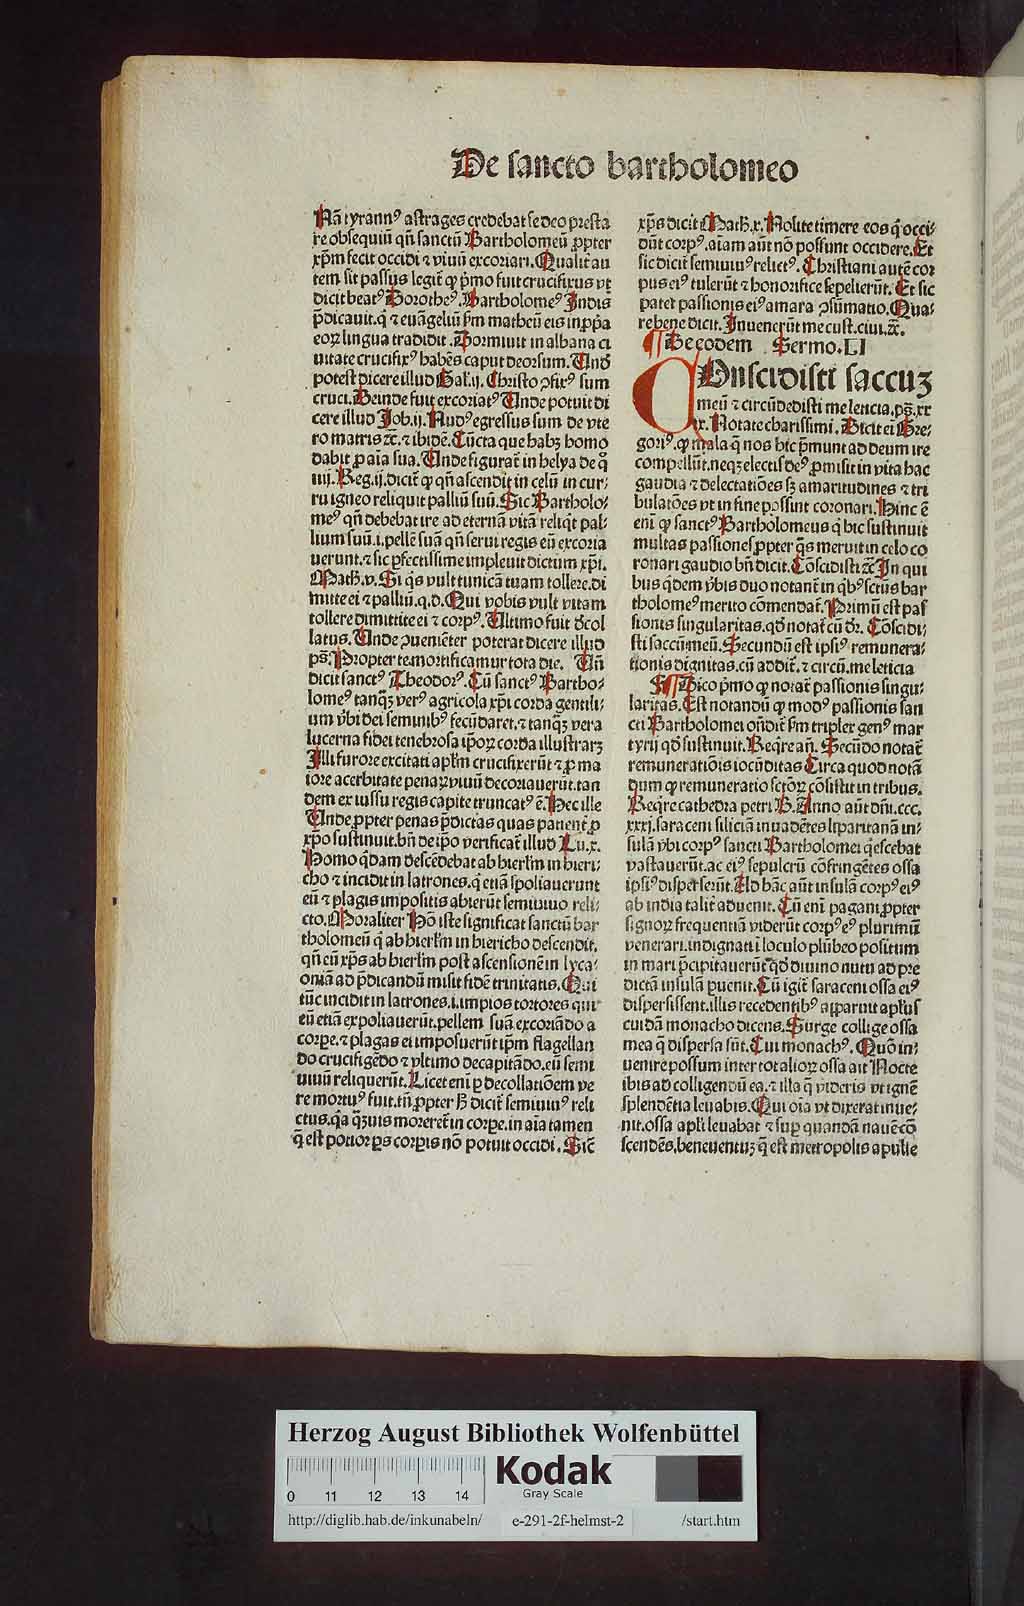 De sancto bartholomeo
Nā tyrannꝰ astrages credebat se deo presta
re obsequiū qn̄ sanctū Bartholomeū ꝓpter
xp̄m fecit occidi ⁊ viuū excoriari. Qualit̄ au
tem sit passus legit̄ ꝙ p̄mo fuit crucifixus vt
dicit beatꝰ Dorotheꝰ. Bartholomeꝰ Indis
p̄dicauit. q̄ ⁊ euāgeliū ẜm matheū eis in ꝓp̄a
eoꝝ lingua tradidit. Dormiuit in albana ci
uitate crucifixꝰ habēs caput deorsum. Vnd̄
potest dicere illud Gal. ij. Christo ꝯfixꝰ sum
cruci. Deinde fuit excoriatꝰ Vnde potuit di
cere illud Job. ij. Nudꝰ egressus sum de vte
ro matris ⁊c̄. ⁊ ibidē. Cūcta que habꝫ homo
dabit ꝓ aīa sua. Vnde figurat̄ in helya de q̊
iiij. Reg. ij. dicit̄ ꝙ qn̄ ascendit in celū in cur/
ru igneo reliquit palliū suū. Sic Bartholo/
meꝰ qn̄ debebat ire ad eternā vitā reliq̇t pal/
lium suū. i. pellē suā qn̄ serui regis eū excoria
uerunt. ⁊ sic ꝑfectissime impleuit dictum xp̄i.
Math. v. Si q̇s vult tunicā tuam tollere. di
mitte ei ⁊ palliū. q. d. Qui vobis vult vitam
tollere dimittite ei ⁊ corpꝰ. Vltimo fuit d̄col
latus. Vnde ꝯueniēter poterat dicere illud
ps̄. Propter te mortificamur tota die. Vn̄
dicit sanctꝰ Theodorꝰ. Cū sanctꝰ Bartho/
lomeꝰ tanq̄ꝫ verꝰ agricola xp̄i corda gentili/
um v̄bi dei seminibꝰ fecūdaret. ⁊ tanq̄ꝫ vera
lucerna fidei tenebrosa ip̄oꝝ corda illustrarꝫ
Illi furore excitati apl̄m crucifixerūt ⁊ ꝓ ma
iore acerbitate penaꝝ viuū decoriauerūt. tan
dem ex iussu regis capite truncatꝰ ē. Hec ille
Vnde ꝓpter penas p̄dictas quas patient̄ ꝓ
xp̄o sustinuit. bn̄ de ip̄o verificat̄ illud Lu. x.
Homo q̇dam descēdebat ab hierl̄m in hieri/
cho ⁊ incidit in latrones. q̇ etiā spoliauerunt
eū ⁊ plagis impositis abierūt semiuiuo reli/
cto. Moraliter Hō iste significat sanctū bar
tholomeū q̇ ab hierl̄m in hiericho descendit.
qn̄ eū xp̄s ab hierl̄m post ascensionē in lyca/
oniā ad p̄dicandū misit fidē trinitatis. Qui
tūc incidit in latrones. i. impios tortores qui
eū etiā expoliauerūt. pellem suā excoriādo a
corꝑe. ⁊ plagas ei imposuerūt ip̄m flagellan
do crucifigēdo ⁊ vltimo decapitādo. eū semi
uiuū reliquerūt. Licet eni ꝑ decollatiōem ve
re mortuꝰ fuit. tn̄ ꝓpter ħ dicit̄ semiuiuꝰ reli
ctus. q̇a q̄ꝫuis moreret̄ in corꝑe. in aīa tamen
q̄ est potior ꝑs corpis nō potuit occidi. Sic̄
xp̄s dicit Math. x. Nolite timere eos q̇ occi/
dūt corpꝰ. aīam aūt nō possunt occidere. Et
sic dicit̄ semiuiuꝰ relictꝰ. Christiani autē cor
pus eiꝰ tulerūt ⁊ honorifice sepelierūt. Et sic
patet passionis eiꝰ amara ꝯsūmatio. Qua/
re bene dicit. Inuenerūt me cust. ciui. ⁊c̄.
¶ De eodem Sermo. LI
COnscidisti saccuꝫ
meū ⁊ circūdedisti me leticia. ps̄. xx
ix. Notate charissimi. Dicit ei Gre/
goriꝰ. ꝙ mala q̄ nos hic p̄munt ad deum ire
compellūt. neqꝫ electis deꝰ ꝓmisit in vita hac
gaudia ⁊ delectatiōes sꝫ amaritudines ⁊ tri
bulatōes vt in fine possint coronari. Hinc ē
eni ꝙ sanctꝰ Bartholomeus q̇ hic sustinuit
multas passiones ꝓpter q̄s meruit in celo co
ronari gaudio bn̄ dicit. Cōscidisti ⁊c̄ In qui
bus q̇dem v̄bis duo notant̄ in q̇bꝰ sctūs bar
tholomeꝰ merito cōmendat̄. Primū est pas
sionis singularitas. qd̄ notat̄ cū dr̄. Cōscidi/
sti saccū meū. Secundū est ipsiꝰ remunera/
tionis dignitas. cū addit̄. ⁊ circū. me leticia
¶ Dico p̄mo ꝙ notat̄ passionis singu/
laritas. Est notandū ꝙ modꝰ passionis san
cti Bartholomei on̄dit̄ ẜm triplex genꝰ mar
tyrij qd̄ sustinuit. Req̇re an̄. Secūdo notat̄
remuneratiōis iocūditas Circa quod notā
dum ꝙ remuneratio sctōꝝ cōsistit in tribus.
Req̇re cathedra petri B. Anno aūt dn̄i. ccc.
xxxj. saraceni siliciā inuadētes liparitanā in/
sulā v̄bi corpꝰ sancti Bartholomei q̇escebat
vastauerūt. ac eiꝰ sepulcrū cōfringētes ossa
ipsiꝰ disperserūt. Ad hāc aūt insulā corpꝰ eiꝰ
ab india talit̄ aduenit. Cū eni pagani ꝓpter
signoꝝ frequentiā viderūt corpꝰ eꝰ plurimū
venerari. indignati ī loculo plūbeo positum
in mari p̄cipitauerūt qd̄ diuino nutu ad pre
dictā insulā ꝑuenit. Cū igit̄ saraceni ossa eiꝰ
dispersissent. illis recedentibꝰ apparuit apl̄us
cuidā monacho dicens. Surge collige ossa
mea q̄ dispersa sūt. Cui monachꝰ. Quō in/
uenire possum inter tot alioꝝ ossa ait Nocte
ibis ad colligendū ea. ⁊ illa q̄ videris vt ignē
splendētia leuabis. Qui oīa vt dixerat inue/
nit. ossa apl̄i leuabat ⁊ suꝑ quandā nauē cō
scendēs. beneuentuꝫ q̄ est metropolis apulie
Herzog August Bibliothek Wolfenbüttel
0 11 12 13 14
Kodak
Gray Scale
http://diglib.hab.de/inkunabeln/ e-291-2f-helmst-2 /start.htm